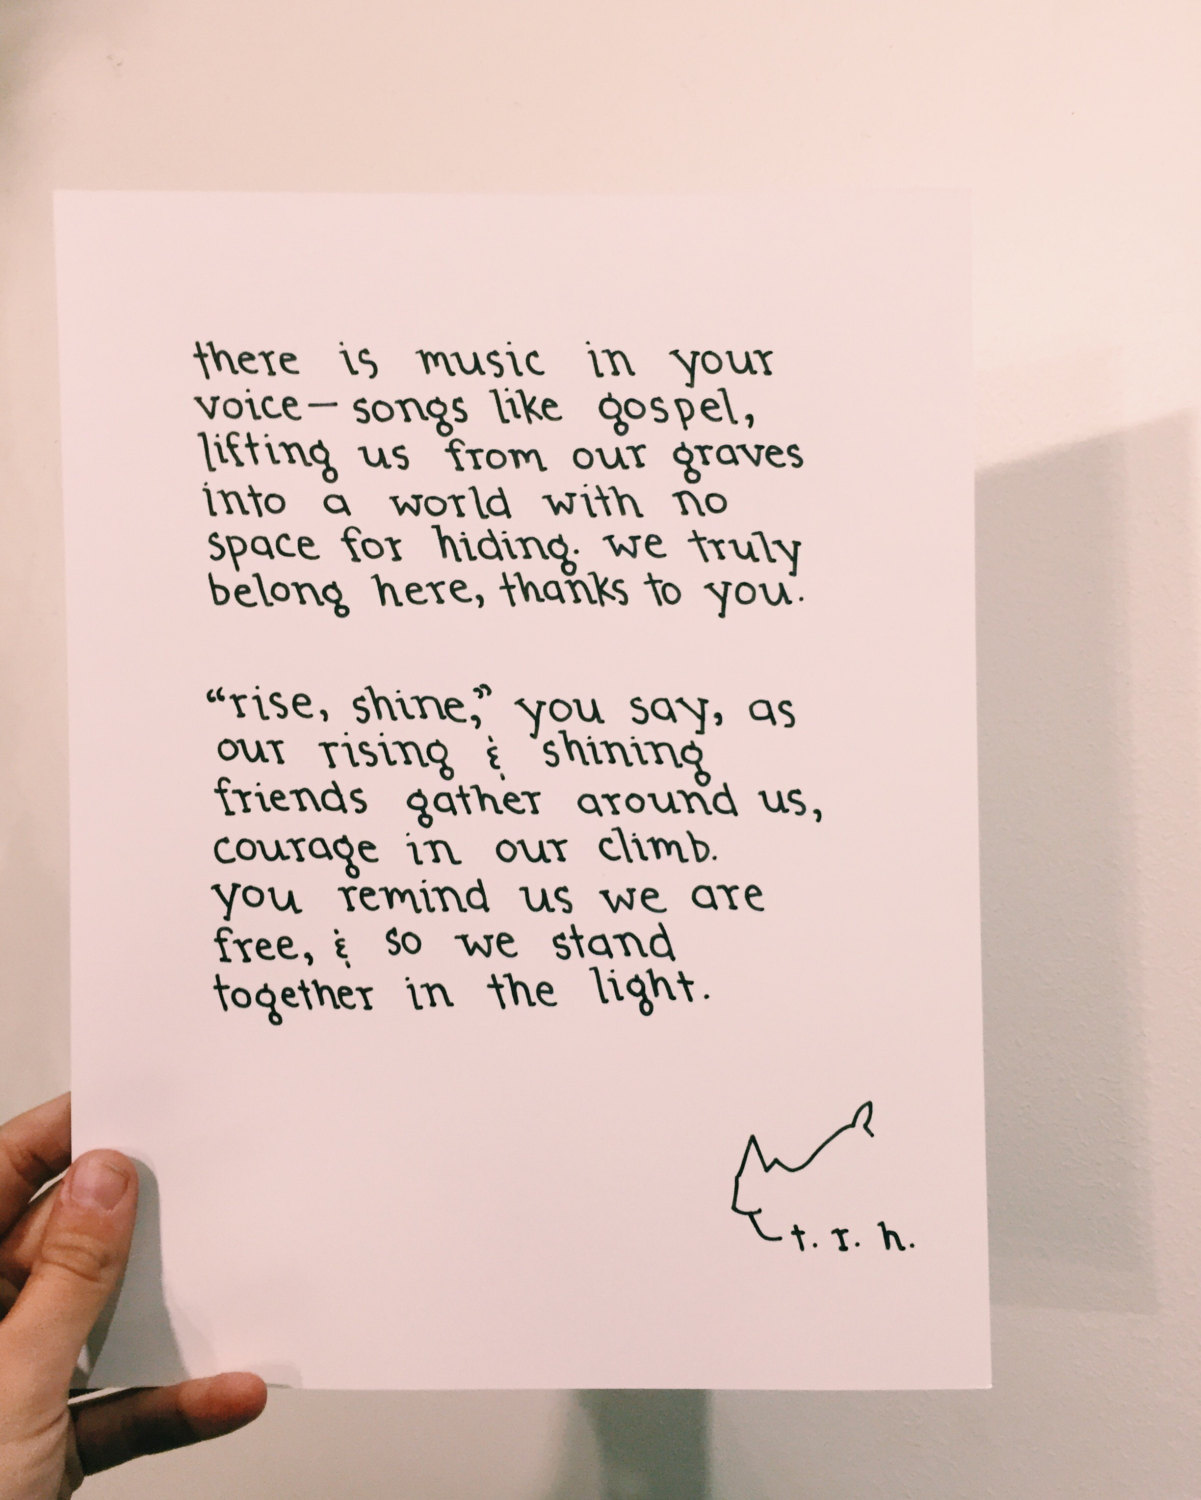 there is music in your
voice— songs like gospel,
lifting us from our graves
into a world with no
space for hiding. we truly
belong here, thanks to you.
“rise, shine,” you say, as
our rising & shining
friends gather around us,
courage in our climb.
you remind us we are
free, & so we stand
together in the light.
t. r. h.